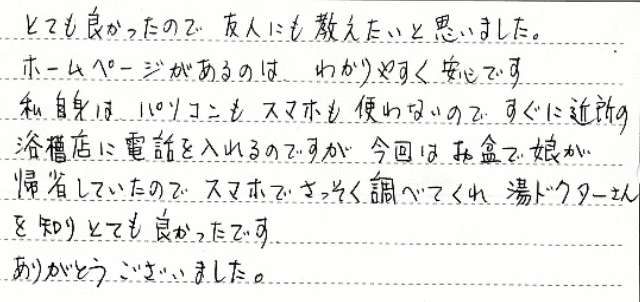 とても良かったので 友人にも教えたいと思いました。
ホームページがあるのは わかりやすく安心です
私自身は パソコンも スマホも 使わないので すぐに近所の
浴槽店に電話を入れるのですが 今回はお盆で娘が
帰省していたので スマホでさっそく調べてくれ 湯ドクターさん
を知り とても良かったです
ありがとうございました。